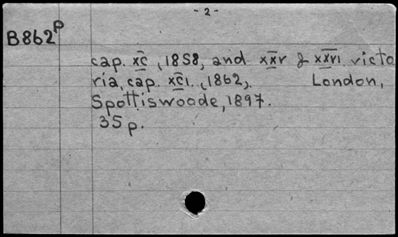 - 2 -
B862p
cap. xc, 1858, and xxv & xxvi victo
ria, cap. xci., 1862,. London,
Spottiswoode, 1897.
35 p.